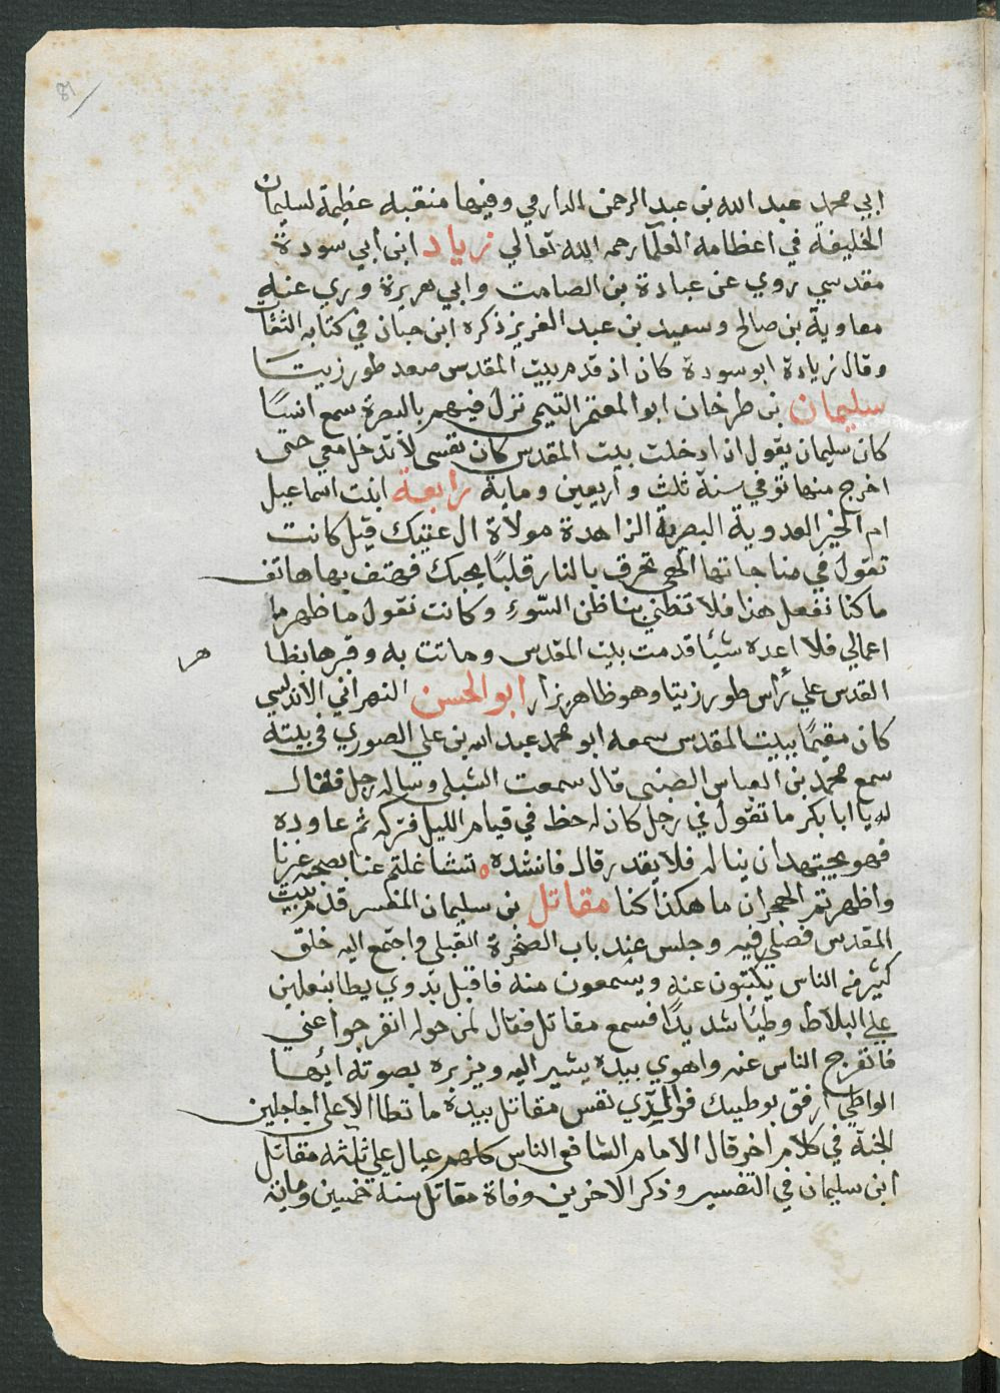 81
ابي محمد عبد الله بن عبد الرحمن الدارمي وفيها منقبه عظيمة لسليمان
الخليفة في اعظامه العلما رحمه الله تعالي زياد ابن ابي سودة
مقدسي روي عن عبادة بن الصامت وابي هريرة وروي عنه
معاوية بن صالح وسعيد بن عبد العزيز ذكره ابن حبان في كتابه الثقات
وقال زيادة ابو سودة كان اذ قدم بيت المقدس صعد طور زيتا
سليمان بن طرخان ابو المعتمر التيمي نزل فيهم بالبصرة سمع انسًا
كان سليمان يقول اذا دخلت بيت المقدس كان نفسي لا تدخل معي حتى
اخرج منها توفي سنة ثلث واربعين وماية رابعة ابنت اسماعيل
ام الخير العدوية البصرية الزاهدة مولاة ال عتيك قيل كانت
تقول في مناجاتها الهي تحرق بالنار قلبًا يحبك فهتف بها هاتف
ما كنا نفعل هذا فلا تظني بنا ظن السّوء وكانت تقول ما ظهر ما
اعمالي فلا اعده شيًا قدمت بيت المقدس وماتت به وقبرها بظا
القدس علي رأس طور زيتا وهو ظاهر يزار ابو الحسن النهراني الاندلسي
كان مقيمًا ببيت المقدس سمعه ابو محمد عبد الله بن علي الصوري في بيته
سمع محمد بن العباس الضبي قال سمعت الشبلي وساله رجل فقال
له يا ابا بكر ما تقول في رجل كان له حظ في قيام الليل فتركه ثم عاوده
فهو يجتهد ان يناله فلا يقدر قال فانشده تشاغلتم عنا بصحبة غيرنا
واظهرتم الهجران ما هكذا كنا مقاتل بن سليمان المفسر قدم بيت
المقدس فصلي فيه وجلس عند باب الصخرة القبلي واجتمع اليه خلق
كثير من الناس يكتبون عنه ويسمعون منه فاقبل بدوي يطا بنعلين
علي البلاط وطيًا شديدًا فسمع مقاتل فقال لمن حوله انفرجوا عني
فانفرج الناس عنه واهوي بيده يشير اليه ويزبره بصوته ايها
الواطي ارفق بوطيك فوالذي نفس مقاتل بيده ما تطا الا علي اجاجين
الجنة في كلام اخر قال الامام الشافعي الناس كلهم عيال علي ثلثه مقاتل
ابن سليمان في التفسير وذكر الاخرين وفاة مقاتل سنة خمسين وماية